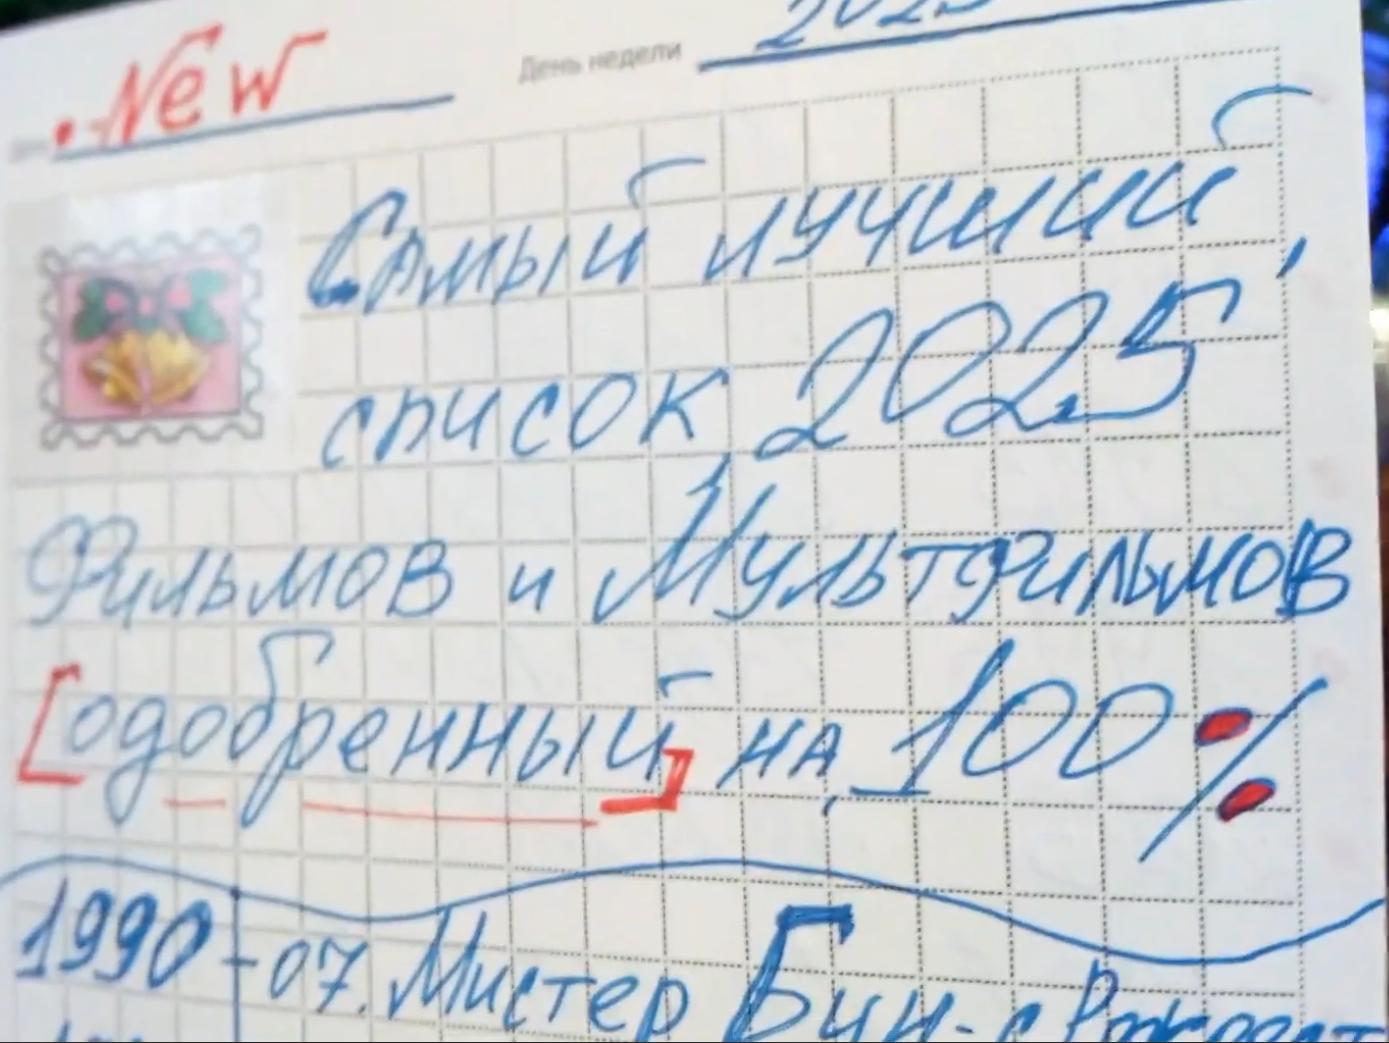 New День недели 2025
Самый лучший,
список 2025
Фильмов и Мультфильмов
[одобренный] на 100%
1990-07. Мистер Бин - с